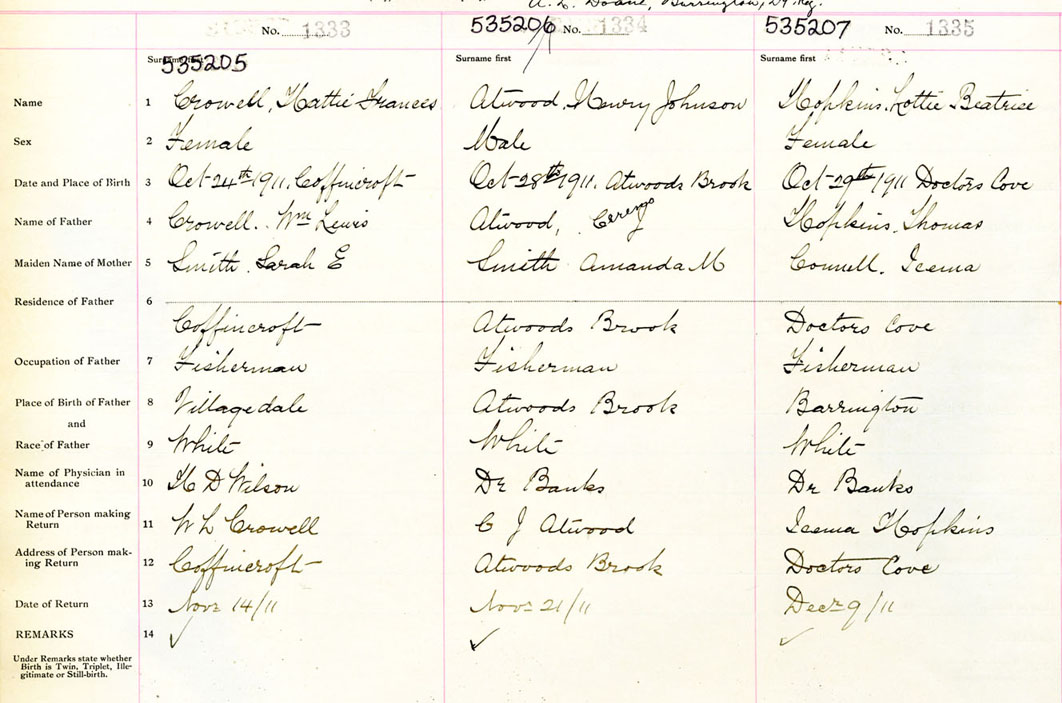 A. L. Doane, Barrington, Dy Reg.
No. 1333
535206 No. 1334
535207 No. 1335
535205
Surname first
Surname first
Name 1 Crowell, Hattie Frances Atwood, Henry Johnson Hopkins, Lottie Beatrice
Sex 2 Female Male Female
Date and Place of Birth 3 Oct 24th 1911. Coffincroft Oct 28th 1911. Atwoods Brook Oct 29th 1911 Doctors Cove
Name of Father 4 Crowell. Wm Lewis Atwood, Hopkins, Thomas
Maiden Name of Mother 5 Smith Sarah E Smith Amanda M
Residence of Father 6
Coffincroft Atwoods Brook Doctors Cove
Occupation of Father 7 Fisherman Fisherman Fisherman
Place of Birth of Father 8 Villagedale Atwoods Brook Barrington
and
Race of Father 9 White White White
Name of Physician in
attendance 10 H D Wilson Dr Banks Dr Banks
Name of Person making
Return 11 W L Crowell C J Atwood Hopkins
Address of Person mak-
ing Return 12 Coffincroft Atwoods Brook Doctors Cove
Date of Return 13 Nov 14/11 Nov 21/11 Dec 9/11
REMARKS 14 ✓ ✓ ✓
Under Remarks state whether
Birth is Twin, Triplet, Ille-
gitimate or Still-birth.